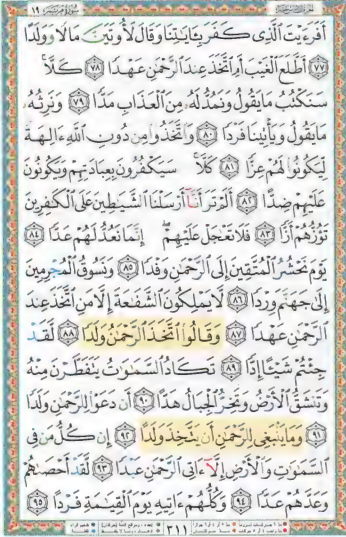 سُورَةُ مَرْيَمَ ١٩
أَفَرَءَيْتَ ٱلَّذِى كَفَرَ بِـَٔايَٰتِنَا وَقَالَ لَأُوتَيَنَّ مَالًا وَوَلَدًا
﴿٧٧﴾ أَطَّلَعَ ٱلْغَيْبَ أَمِ ٱتَّخَذَ عِندَ ٱلرَّحْمَٰنِ عَهْدًا ﴿٧٨﴾ كَلَّا
سَنَكْتُبُ مَا يَقُولُ وَنَمُدُّ لَهُۥ مِنَ ٱلْعَذَابِ مَدًّا ﴿٧٩﴾ وَنَرِثُهُۥ
مَا يَقُولُ وَيَأْتِينَا فَرْدًا ﴿٨٠﴾ وَٱتَّخَذُوا۟ مِن دُونِ ٱللَّهِ ءَالِهَةً
لِّيَكُونُوا۟ لَهُمْ عِزًّا ﴿٨١﴾ كَلَّا سَيَكْفُرُونَ بِعِبَادَتِهِمْ وَيَكُونُونَ
عَلَيْهِمْ ضِدًّا ﴿٨٢﴾ أَلَمْ تَرَ أَنَّآ أَرْسَلْنَا ٱلشَّيَٰطِينَ عَلَى ٱلْكَٰفِرِينَ
تَؤُزُّهُمْ أَزًّا ﴿٨٣﴾ فَلَا تَعْجَلْ عَلَيْهِمْ إِنَّمَا نَعُدُّ لَهُمْ عَدًّا ﴿٨٤﴾
يَوْمَ نَحْشُرُ ٱلْمُتَّقِينَ إِلَى ٱلرَّحْمَٰنِ وَفْدًا ﴿٨٥﴾ وَنَسُوقُ ٱلْمُجْرِمِينَ
إِلَىٰ جَهَنَّمَ وِرْدًا ﴿٨٦﴾ لَّا يَمْلِكُونَ ٱلشَّفَٰعَةَ إِلَّا مَنِ ٱتَّخَذَ عِندَ
ٱلرَّحْمَٰنِ عَهْدًا ﴿٨٧﴾ وَقَالُوا۟ ٱتَّخَذَ ٱلرَّحْمَٰنُ وَلَدًا ﴿٨٨﴾ لَّقَدْ
جِئْتُمْ شَيْـًٔا إِدًّا ﴿٨٩﴾ تَكَادُ ٱلسَّمَٰوَٰتُ يَتَفَطَّرْنَ مِنْهُ
وَتَنشَقُّ ٱلْأَرْضُ وَتَخِرُّ ٱلْجِبَالُ هَدًّا ﴿٩٠﴾ أَن دَعَوْا۟ لِلرَّحْمَٰنِ وَلَدًا
﴿٩١﴾ وَمَا يَنۢبَغِى لِلرَّحْمَٰنِ أَن يَتَّخِذَ وَلَدًا ﴿٩٢﴾ إِن كُلُّ مَن فِى
ٱلسَّمَٰوَٰتِ وَٱلْأَرْضِ إِلَّآ ءَاتِى ٱلرَّحْمَٰنِ عَبْدًا ﴿٩٣﴾ لَّقَدْ أَحْصَىٰهُمْ
وَعَدَّهُمْ عَدًّا ﴿٩٤﴾ وَكُلُّهُمْ ءَاتِيهِ يَوْمَ ٱلْقِيَٰمَةِ فَرْدًا ﴿٩٥﴾
٣١١